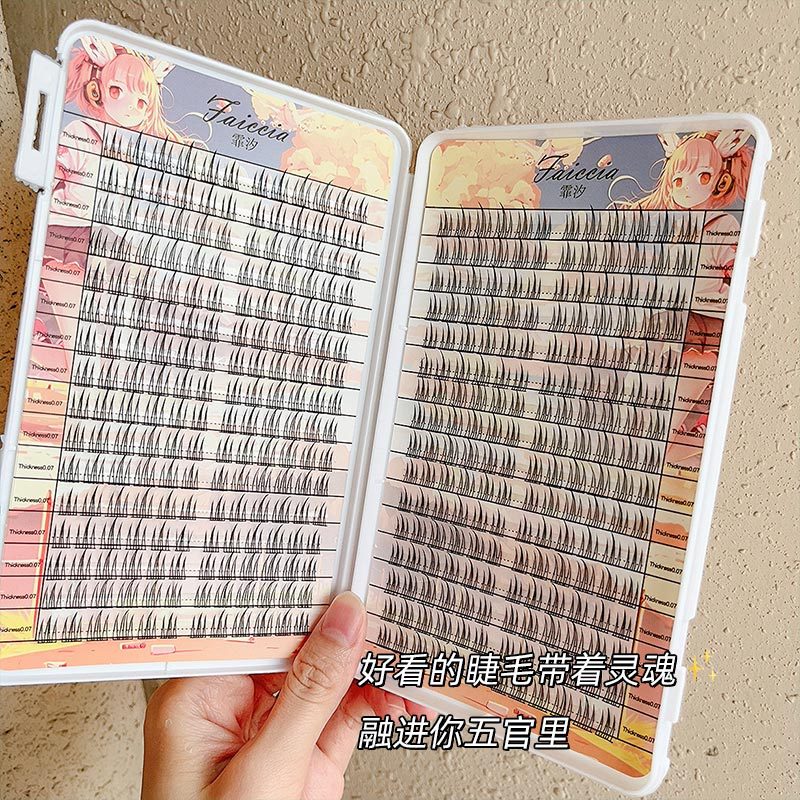 Faiccia
霏汐
Thickness0.07
Thickness0.07
Thickness0.07
Thickness0.07
Thickness0.07
Thickness0.07
Thickness0.07
Thickness0.07
Thickness0.07
Thickness0.07
Thickness0.07
Thickness0.07
Thickness0.07
Thickness0.07
Thickness0.07
Thickness0.07
Faiccia
霏汐
Thickness0.07
Thickness0.07
Thickness0.07
Thickness0.07
Thickness0.07
Thickness0.07
Thickness0.07
Thickness0.07
Thickness0.07
Thickness0.07
Thickness0.07
Thickness0.07
Thickness0.07
Thickness0.07
Thickness0.07
Thickness0.07
好看的睫毛带着灵魂
融进你五官里